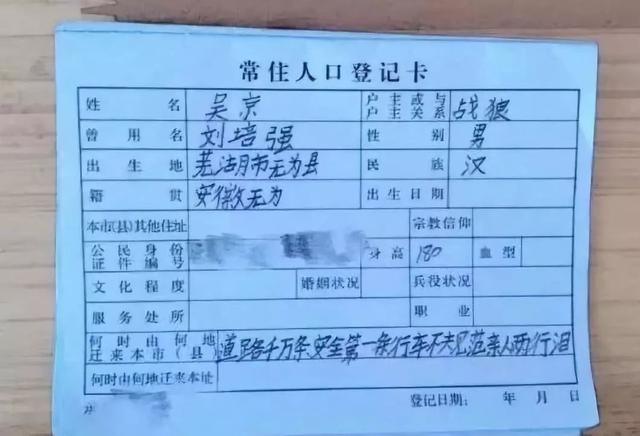 常住人口登记卡
姓名 吴京 户主或与户主关系 战狼
曾用名 刘培强 性别 男
出生地 芜湖市无为县 民族 汉
籍贯 安徽无为 出生日期
本市(县)其他住址 宗教信仰
公民身份证件编号 身高 180 血型
文化程度 婚姻状况 兵役状况
服务处所 职业
何时由何地迁来本市(县) 道路千万条,安全第一条行车不规范亲人两行泪
何时由何地迁来本址
登记日期: 年 月 日